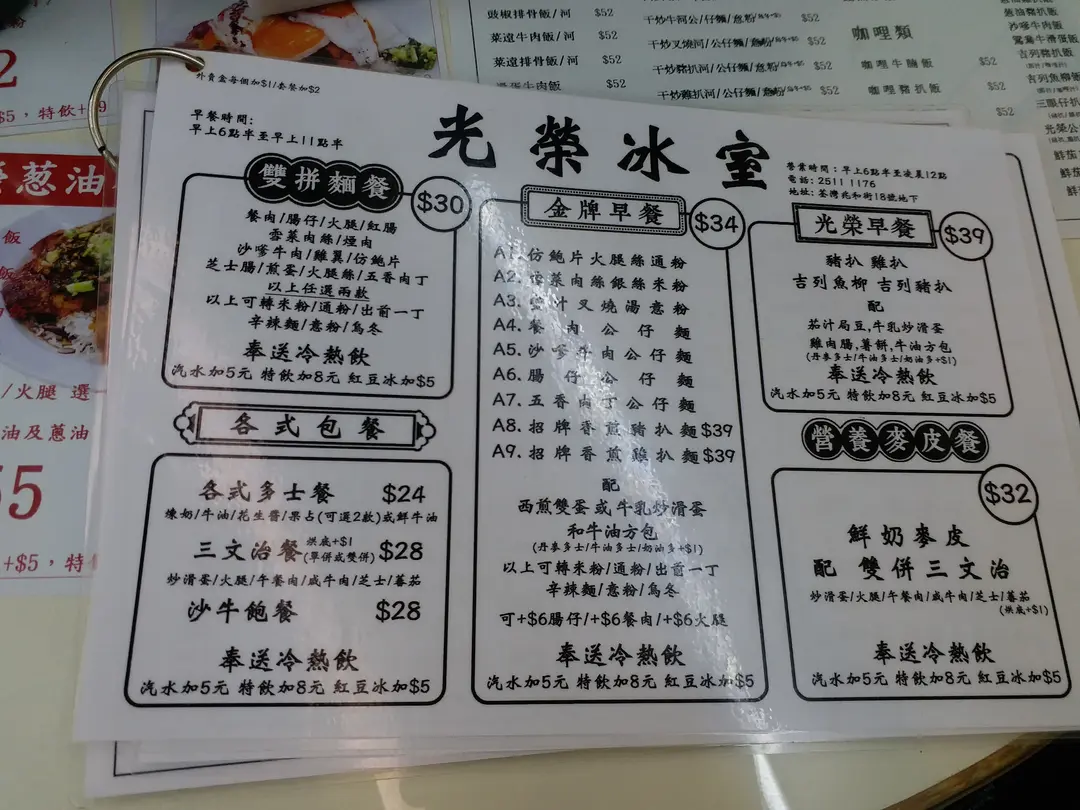 外賣盒每個加$1/套餐加$2
早餐時間:
早上6點半至早上11點半
光榮冰室
營業時間：早上6點半至凌晨12點
電話: 2511 1176
地址: 荃灣兆和街18號地下
雙拼麵餐
$30
餐肉/腸仔/火腿/紅腸
雪菜肉絲/煙肉
沙嗲牛肉/雞翼/仿鮑片
芝士腸/煎蛋/火腿絲/五香肉丁
以上任選兩款
以上可轉米粉/通粉/出前一丁
辛辣麵/意粉/烏冬
奉送冷熱飲
汽水加5元 特飲加8元 紅豆冰加$5
各式包餐
各式多士餐 $24
煉奶/牛油/花生醬/果占(可選2款)或鮮牛油
三文治餐 烘底+$1 (單併或雙併) $28
炒滑蛋/火腿/午餐肉/咸牛肉/芝士/蕃茄
沙牛飽餐 $28
奉送冷熱飲
汽水加5元 特飲加8元 紅豆冰加$5
金牌早餐
$34
A1. 仿鮑片火腿絲通粉
A2. 雪菜肉絲銀絲米粉
A3. 汁叉燒湯意粉
A4. 餐肉公仔麵
A5. 沙嗲牛肉公仔麵
A6. 腸仔公仔麵
A7. 五香肉丁公仔麵
A8. 招牌香煎豬扒麵$39
A9. 招牌香煎雞扒麵$39
配
西煎雙蛋或牛乳炒滑蛋
和牛油方包
(丹麥多士/牛油多士/奶油多+$1)
以上可轉米粉/通粉/出前一丁
辛辣麵/意粉/烏冬
可+$6腸仔/+$6餐肉/+$6火腿
奉送冷熱飲
汽水加5元 特飲加8元 紅豆冰加$5
光榮早餐
$39
豬扒 雞扒
吉列魚柳 吉列豬扒
配
茄汁局豆,牛乳炒滑蛋
雞肉腸,薯餅,牛油方包
(丹麥多士/牛油多士/奶油多+$1)
奉送冷熱飲
汽水加5元 特飲加8元 紅豆冰加$5
營養麥皮餐
$32
鮮奶麥皮
配 雙併三文治
炒滑蛋/火腿/午餐肉/咸牛肉/芝士/蕃茄
(烘底+$1)
奉送冷熱飲
汽水加5元 特飲加8元 紅豆冰加$5
豉椒排骨飯/河 $52
菜遠牛肉飯/河 $52
菜遠排骨飯/河 $52
滑蛋牛肉飯 $52
干炒牛河/公仔麵/意粉 $52
干炒叉燒河/公仔麵/意粉 $52
干炒豬扒河/公仔麵/意粉 $52
干炒雞扒河/公仔麵/意粉 $52
咖哩類
咖哩牛腩飯 $52
咖哩豬扒飯 $52
$52
蔥油豬扒飯
沙嗲牛肉飯
鴛鴦牛滑蛋飯
吉列豬扒飯
吉列魚柳飯
$5，特飲+$9
蔥油
飯
飯
/火腿 選一
油及蔥油
+$5，特